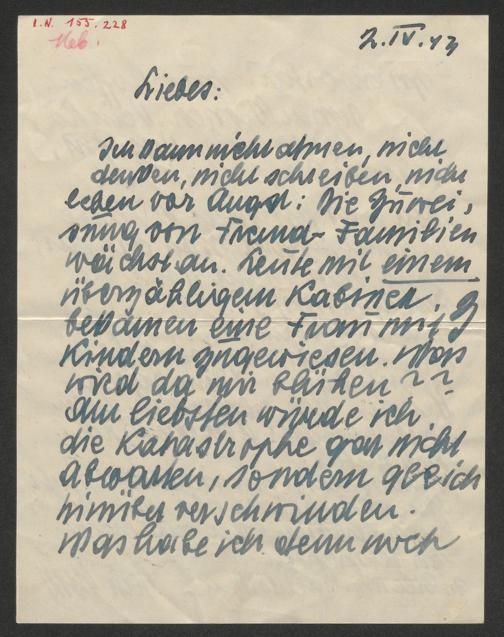 I.N. 155.228
Neb.
2.IV.43
Liebes:
Ich kann nicht atmen, nicht
denken, nicht schreiben, nicht
leben vor Angst: Die Zuwei,
sung von Fremd-Familien
wächst an. Leute mit einem
überzähligem Kabinet,
bekamen eine Frau mit 3
Kindern zugewiesen. Was
wird da mir blühen??
Am liebsten würde ich
die Katastrophe gar nicht
abwarten, sondern gleich
hinüber verschwinden.
Was habe ich denn noch